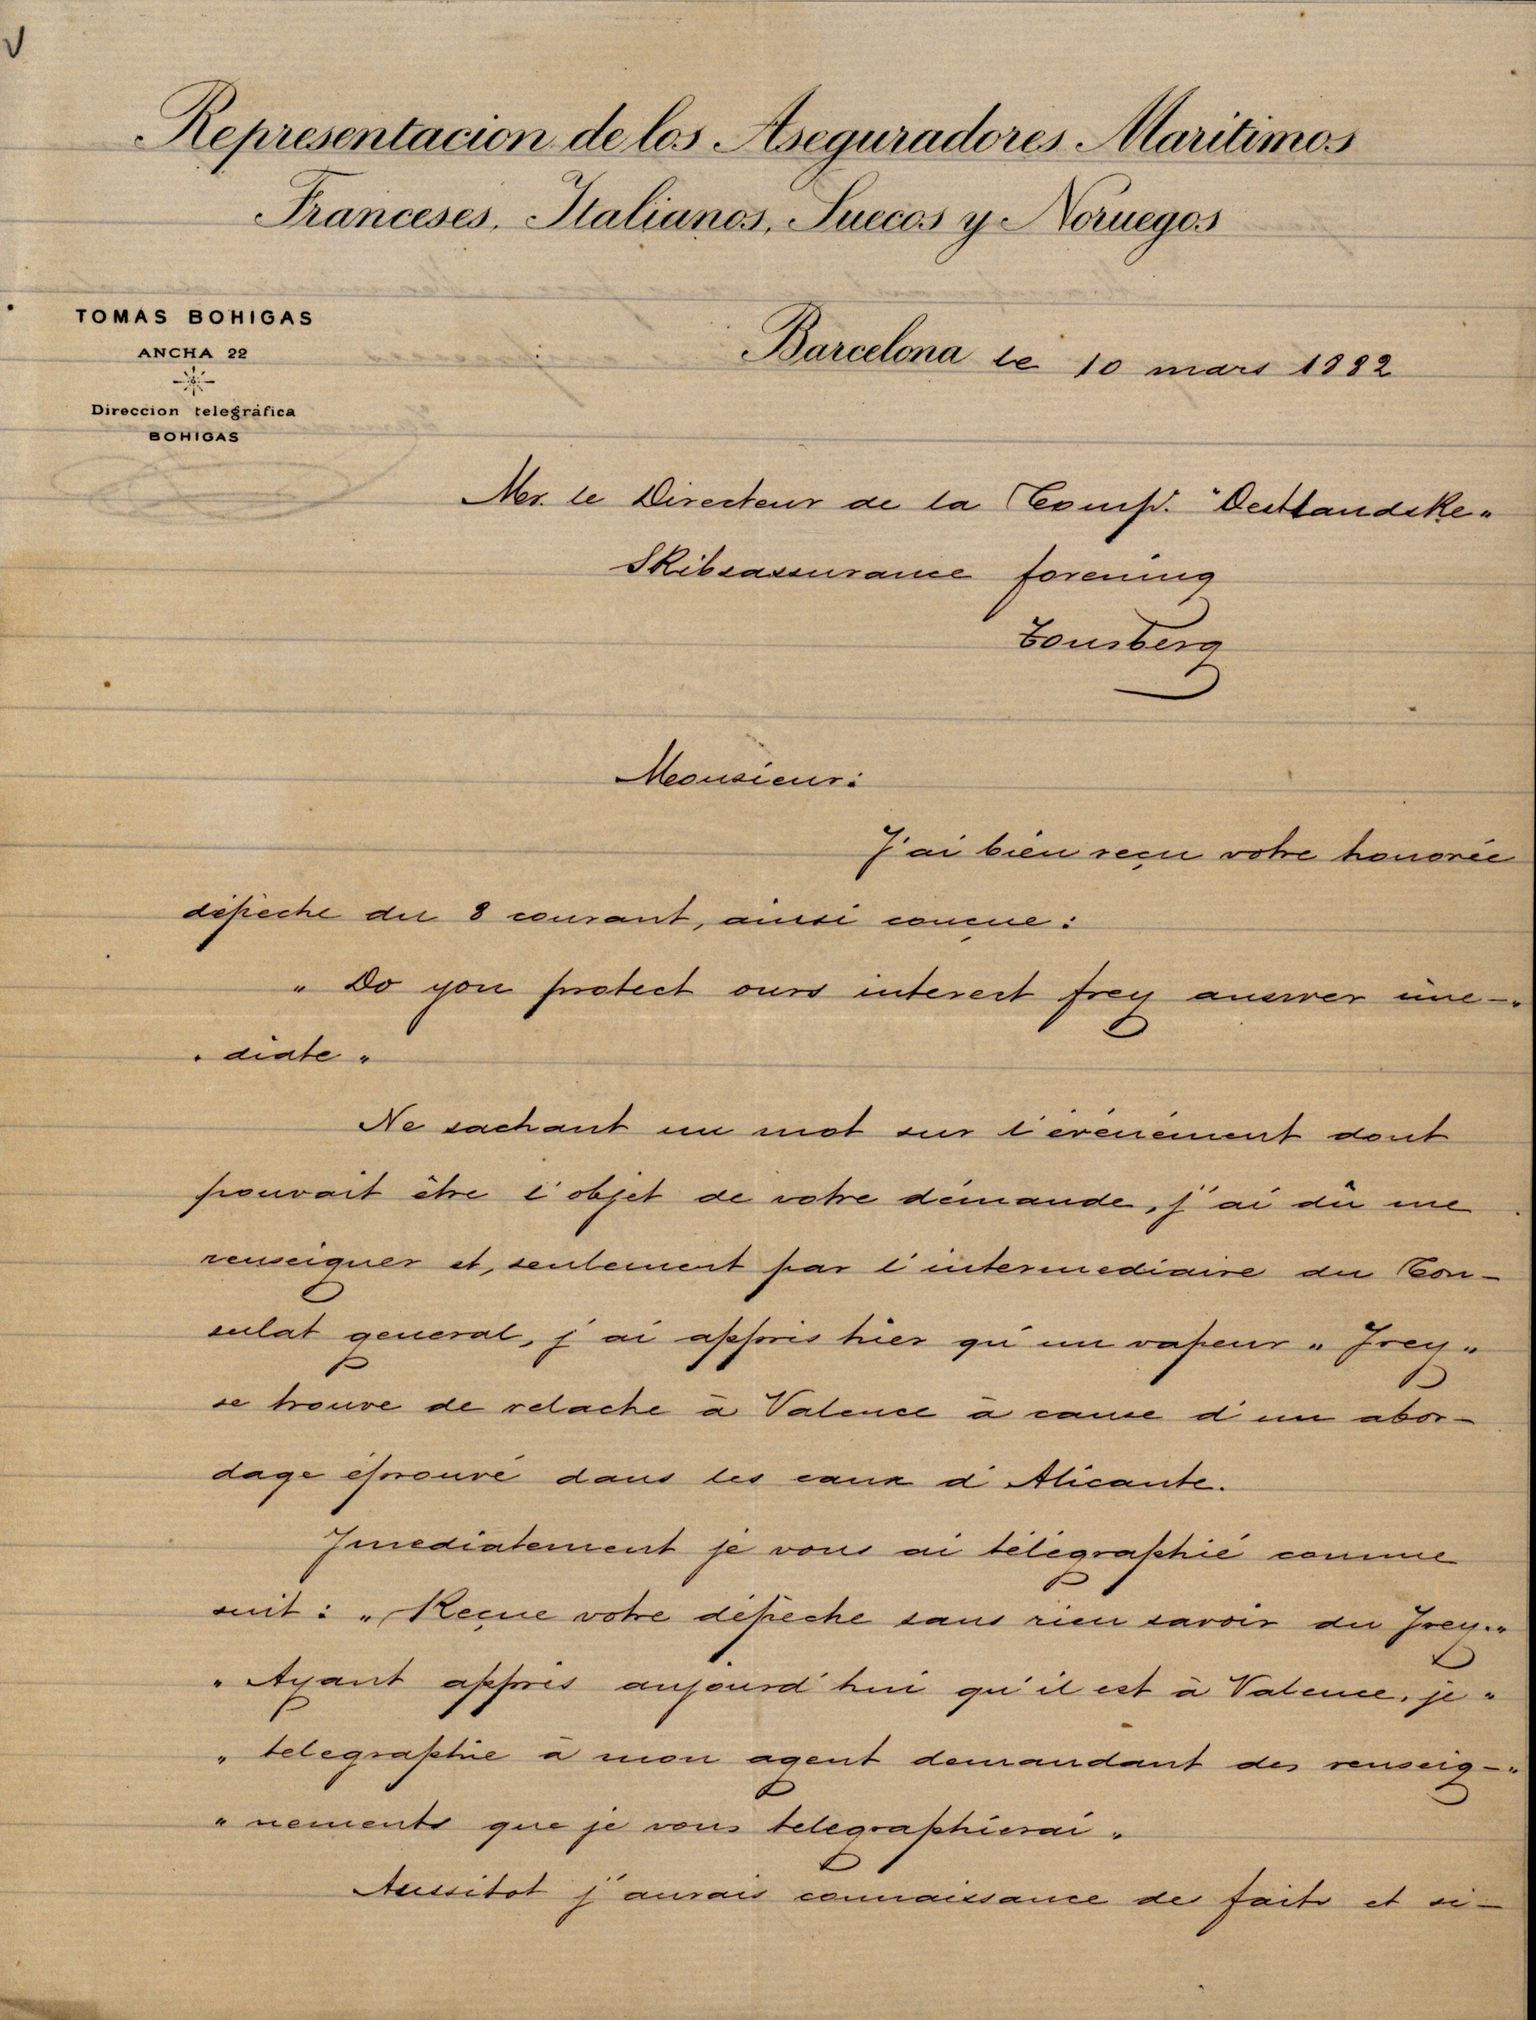 Representacion de los Aseguradores Maritimos
Franceses, Italianos, Suecos y Noruegos
TOMAS BOHIGAS
ANCHA 22
Direccion telegráfica
BOHIGAS
Barcelona le 10 mars 1882
Mr. le Directeur de la Comp. "Oestlandske"
Skibsassurance forening
Tonsberg
Monsieur:
J'ai bien reçu votre honorée
dépèche du 8 courant, ainsi conçue:
" Do you protect ours interest frey answer ime-"
" diate "
Ne sachant un mot sur l'événément dont
pouvait être l'objet de votre démande, j'ai dû me
renseigner et, seulement par l'intermediaire du Con-
sulat general, j'ai appris hier qu'un vapeur "Frey"
se trouve de relache à Valence à cause d'un abor-
dage éprouvé dans les eaux d'Alicante.
Imediatement je vous ai télégraphié comme
suit: "Reçue votre dépèche sans rien savoir du Frey."
" Ayant appris aujourd'hui qu'il est à Valence, je "
" telegraphie à mon agent demandant des renseig-"
" nements que je vous telegraphierai "
Aussitot j'aurais connaissance de faits et si-